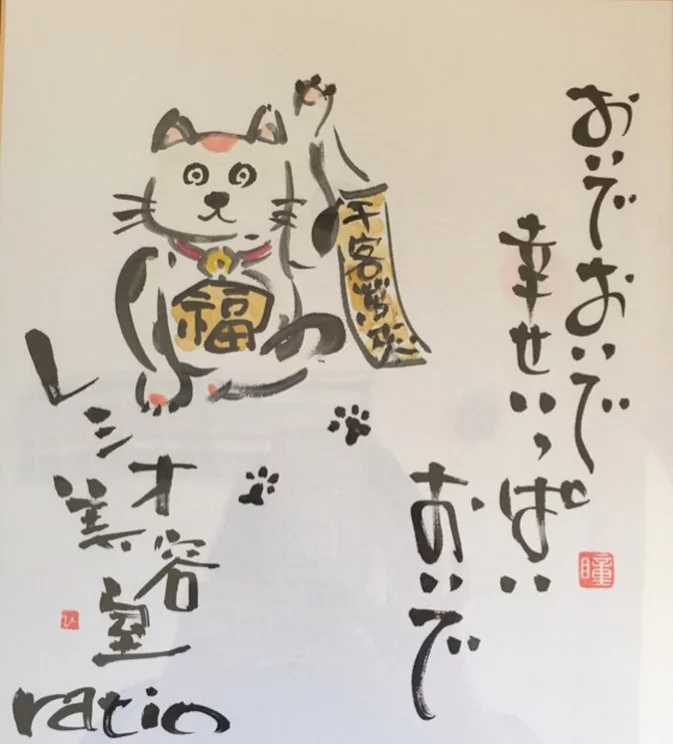 おいでおいで
幸せいっぱい
おいで
瞳
千客萬来
福
レシオ
美容室
ratio
ひ